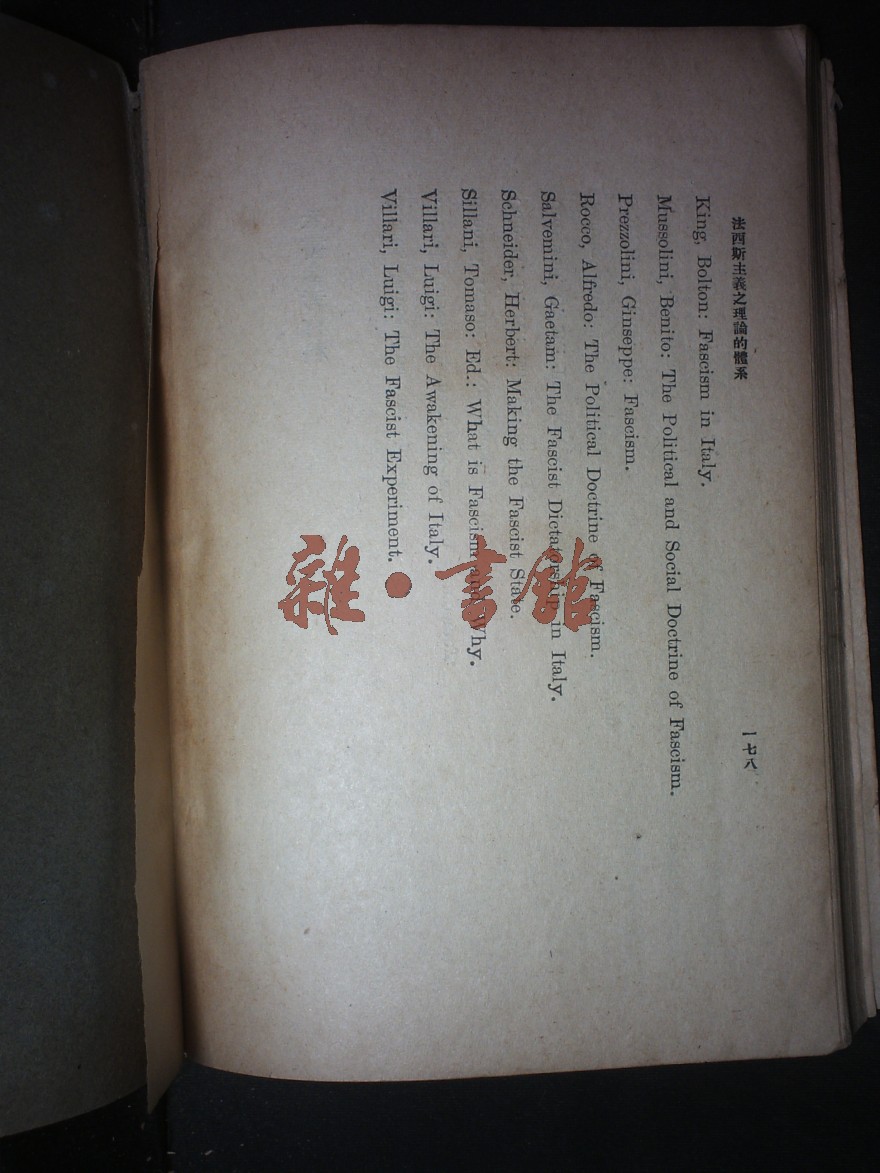 法西斯主義之理論的體系
一七八
King, Bolton: Fascism in Italy.
Mussolini, Benito: The Political and Social Doctrine of Fascism.
Prezzolini, Ginseppe: Fascism.
Rocco, Alfredo: The Political Doctrine of Fascism.
Salvemini, Gaetam: The Fascist Dictatorship in Italy.
Schneider, Herbert: Making the Fascist State.
Sillani, Tomaso: Ed.: What is Fascism and Why.
Villari, Luigi: The Awakening of Italy.
Villari, Luigi: The Fascist Experiment.
雜·書館